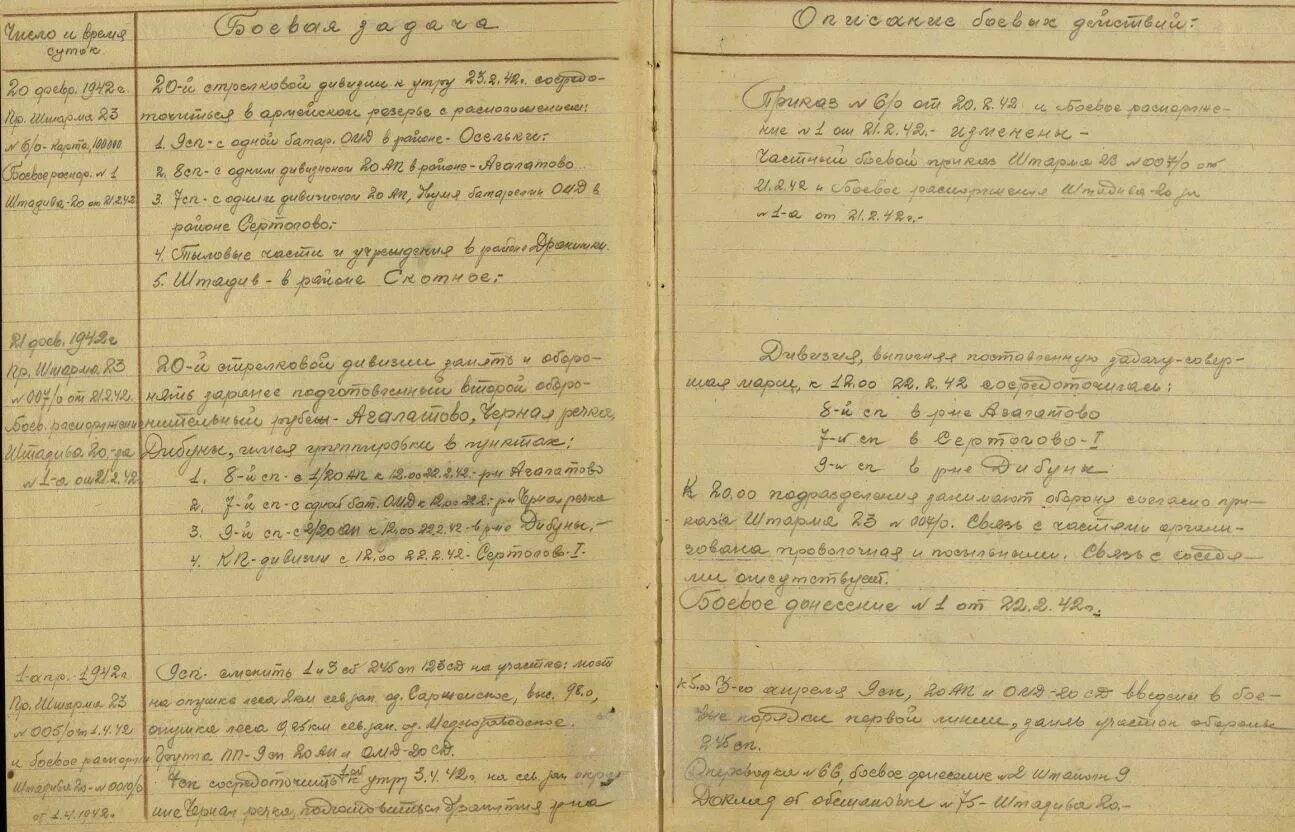 Число и время
суток
Боевая задача
Описание боевых действий:
20 февр. 1942 г.
Пр. Штарма 23
№ 6/0 - карта 100000.
Боевое распор. № 1
Штадива-20 от 21.2.42
20-й стрелковой дивизии к утру 23.2.42г. сосредо-
точиться в армейском резерве с расположением:
1. 9сп - с одной батар. ОМД в районе - Осельки:-
2. 8сп - с одним дивизионом 20 АП в районе - Агалатово
3. 7сп - с одним дивизионом 20 АП, двумя батареями ОМД в
районе Сертолово:-
4. Тыловые части и учреждения в районе Дранишки.
5. Штадив - в районе Скотное:-
Приказ № 6/0 от 20.2.42 и боевое распоряже-
ние № 1 от 21.2.42.- изменены -
Частный боевой приказ Штарма 23 № 007/0 от
21.2.42 и боевое распоряжения Штадива-20
№ 1-а от 21.2.42г.-
21 фев. 1942 г
Пр. Штарма 23
№ 007/0 от 21.2.42.
Боев. распоряжени
Штадива 20-
№ 1-а от 21.2.42
20-й стрелковой дивизии занять и оборо-
нять заранее подготовленный второй оборо-
нительный рубеж - Агалатово, Черная речка,
Дибуны, имея группировки в пунктах:
1. 8-й сп - с 1/20 АП к 12.00 22.2.42 - р-н Агалатово
2. 7-й сп - с одной бат. ОМД к 12.00 22.2.- р-н Черная речка
3. 9-й сп - с 2/20 АП к 12.00 22.2.42 - в р-не Дибуны,-
4. КП - дивизии с 12.00 22.2.42 - Сертолово-I.-
Дивизия, выполняя поставленную задачу - совер-
шая марш, к 12.00 22.2.42 сосредоточилась:
8-й сп в р-не Агалатово
7-й сп в Сертолово-I
9-й сп в р-не Дибуны.
К 20.00 подразделения занимают оборону согласно при-
каза Штарма 23 № 007/0. Связь с частями органи-
зована проволочная и посыльными. Связь с соседя-
ми отсутствует.
Боевое донесение № 1 от 22.2.42г.
1-апр. - 1942 г
Пр. Штарма 23
№ 005/0 от 1.4.42
и боевое распоряж
Штадива 20 - № 0010/0
от 1.4.1942г.
9сп - сменить 1 и 3 сб 245 сп 123 СД на участке: мост
на опушке леса 2км сев. зап. од. Саржевское, выс. 98.0,
опушка леса 0,25км сев. зап. од. Меднозаводское.
Группа ПП - 9 сп 20 АП и ОМД - 20 СД.
7сп сосредоточить к утру 3.4.42г. на сев. зап. окра-
ине Черная речка, подготовиться занятия р-на
к 5.00 3-го апреля 9сп, 20 АП и ОМД - 20 СД введены в бое-
вые порядки первой линии, заняв участок обороны
245 сп.
Оперсводка № 66, боевое донесение № 2
Доклад об обстановке № 75 - Штадива 20.-